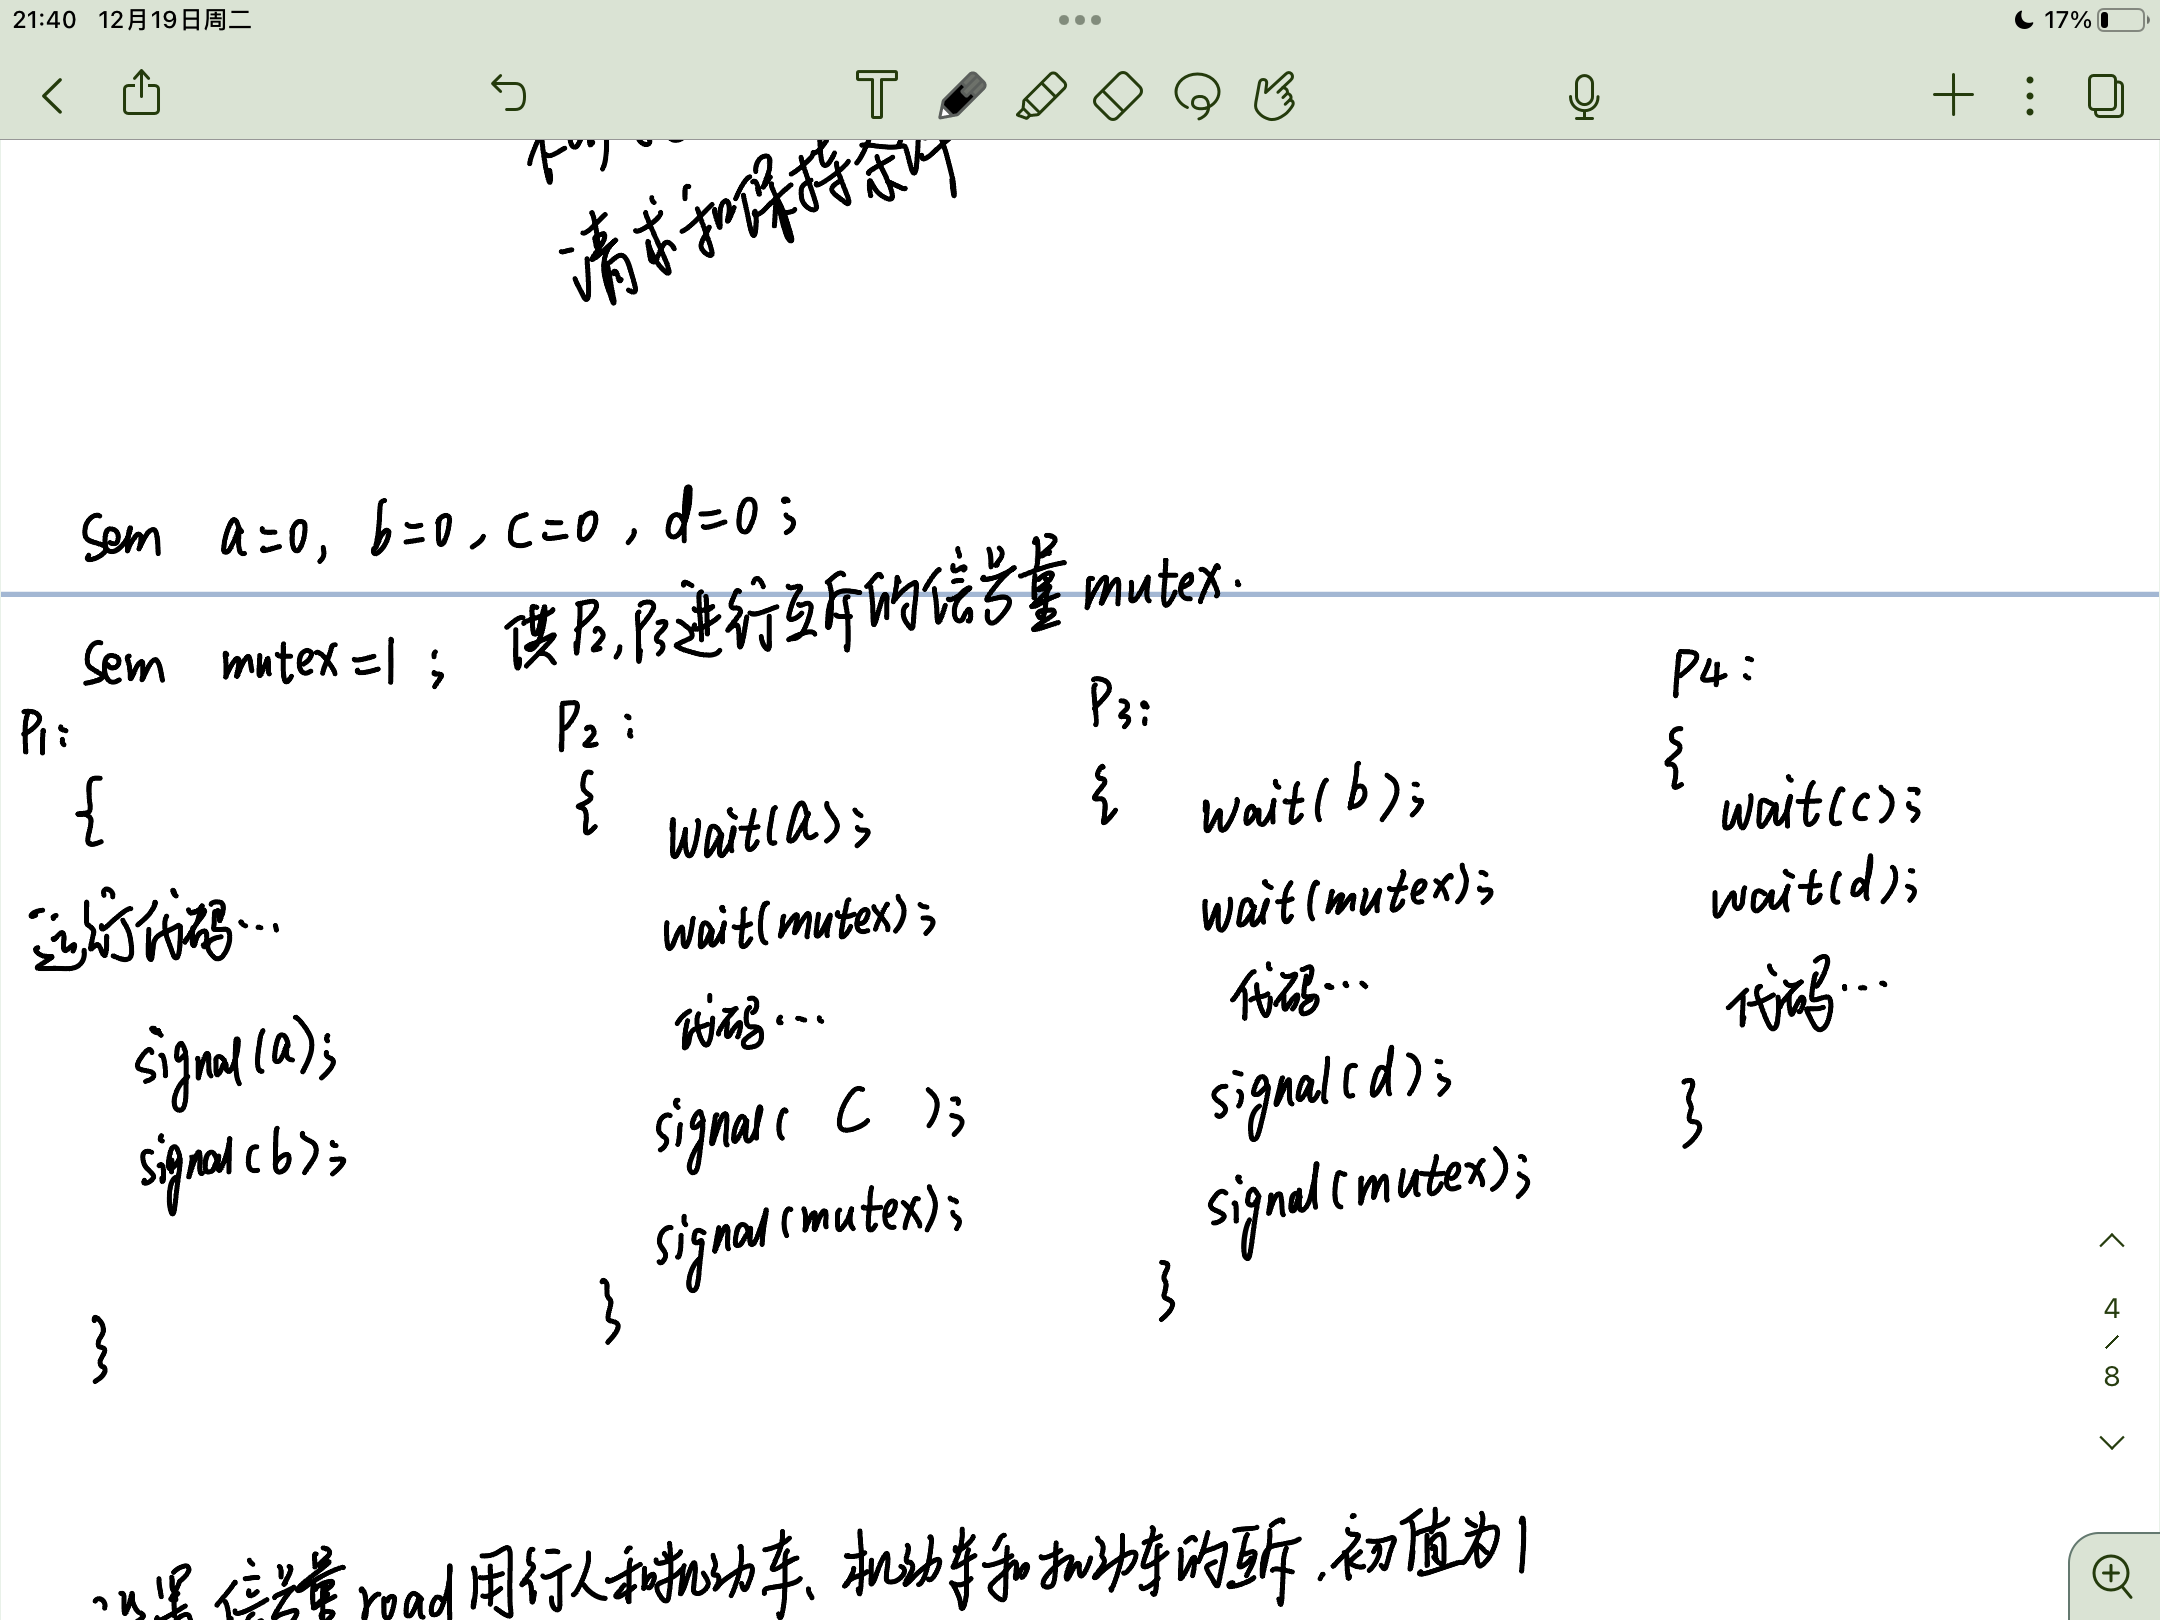 21:40 12月19日周二
17%
请求和保持条件
Sem a=0, b=0, c=0, d=0;
Sem mutex=1; 供P2,P3进行互斥的信号量mutex.
P1:
{
运行代码…
signal(a);
signal(b);
}
P2:
{
wait(a);
wait(mutex);
代码…
signal( C );
signal(mutex);
}
P3:
{
wait(b);
wait(mutex);
代码…
signal(d);
signal(mutex);
}
P4:
{
wait(c);
wait(d);
代码…
}
4
/
8
设置信号量road用行人和机动车、机动车和机动车的互斥,初值为1